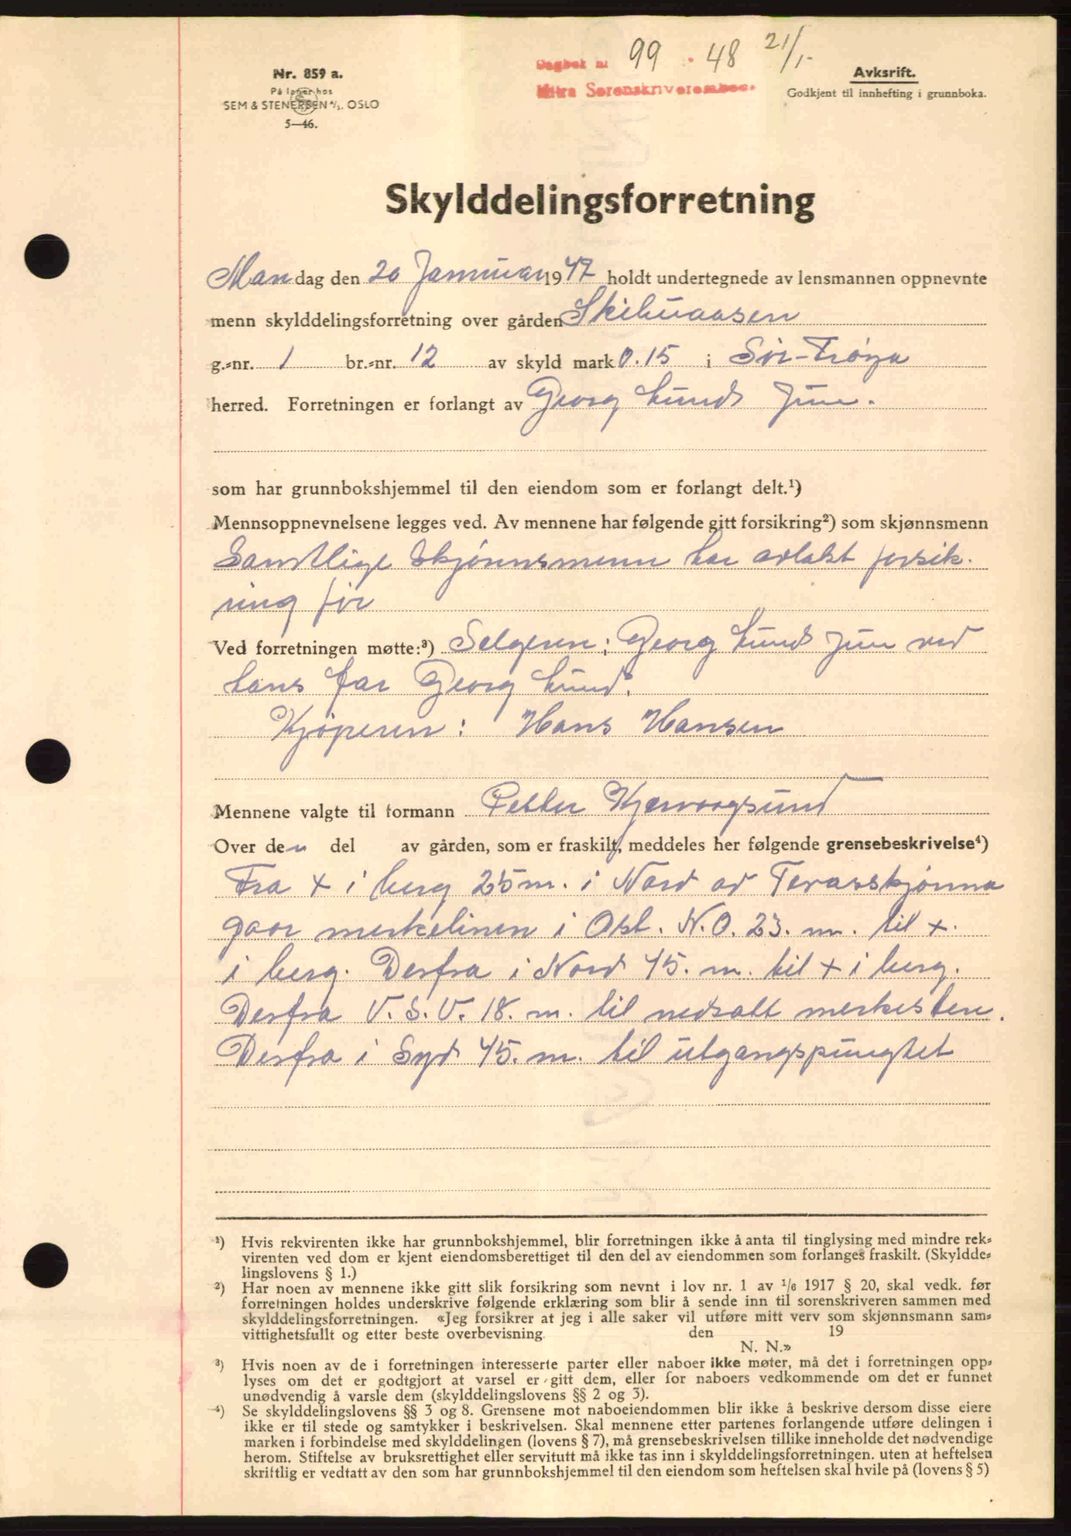 Nr. 859 a.
På lager hos
SEM & STENERSEN A/S. OSLO
5—46.
Dagbok nr 99 - 48 21/1-
Hitra Sorenskriverembee.
Avkskrift.
Godkjent til innhefting i grunnboka.
Skylddelingsforretning
Mandag den 20 Januuar 1947 holdt undertegnede av lensmannen oppnevnte
menn skylddelingsforretning over gården Skihuaasen
g.-nr. 1 br.-nr. 12 av skyld mark 0.15 i Sør-Frøya
herred. Forretningen er forlangt av Georg Lund Jun.
som har grunnbokshjemmel til den eiendom som er forlangt delt.¹)
Mennsoppnevnelsene legges ved. Av mennene har følgende gitt forsikring²) som skjønnsmenn
Samtlige Skjønnsmenn har avlakt forsik-
ring før
Ved forretningen møtte:³) Selgeren; Georg Lund Jun ved
hans far Georg Lund.
Kjøperen: Hans Hansen
Mennene valgte til formann Petter Kjervaagsund
Over den del av gården, som er fraskilt, meddeles her følgende grensebeskrivelse⁴)
Fra + i berg 25 m. i Nord av Terasskjønna
gaar merkelinen i Ost. N.O. 23. m. til +.
i berg. Derfra i Nord 45. m. til + i berg.
Derfra V. S. V. 18. m. til nedsatt merkesten.
Derfra i Syd 45. m. til utgangspungtet
¹) Hvis rekvirenten ikke har grunnbokshjemmel, blir forretningen ikke å anta til tinglysing med mindre rek-
virenten ved dom er kjent eiendomsberettiget til den del av eiendommen som forlanges fraskilt. (Skyldde-
lingslovens § 1.)
²) Har noen av mennene ikke gitt slik forsikring som nevnt i lov nr. 1 av 1/6 1917 § 20, skal vedk. før
forretningen holdes underskrive følgende erklæring som blir å sende inn til sorenskriveren sammen med
skylddelingsforretningen. «Jeg forsikrer at jeg i alle saker vil utføre mitt verv som skjønnsmann sam-
vittighetsfullt og etter beste overbevisning. den 19
N. N.»
³) Hvis noen av de i forretningen interesserte parter eller naboer ikke møter, må det i forretningen opp-
lyses om det er godtgjort at varsel er gitt dem, eller for naboers vedkommende om det er funnet
unødvendig å varsle dem (skylddelingslovens §§ 2 og 3).
⁴) Se skylddelingslovens §§ 3 og 8. Grensene mot naboeiendommen blir ikke å beskrive dersom disse eiere
ikke er til stede og samtykker i beskrivelsen. Skal mennene etter partenes forlangende utføre delingen i
marken i forbindelse med skylddelingen (lovens § 7), må grensebeskrivelsen tillike inneholde det nødvendige
herom. Stiftelse av bruksrettighet eller servitutt må ikke tas inn i skylddelingsforretningen. uten at heftelsen
skriftlig er vedtatt av den som har grunnbokshjemmel til den eiendom som heftelsen skal hvile på (lovens § 5)